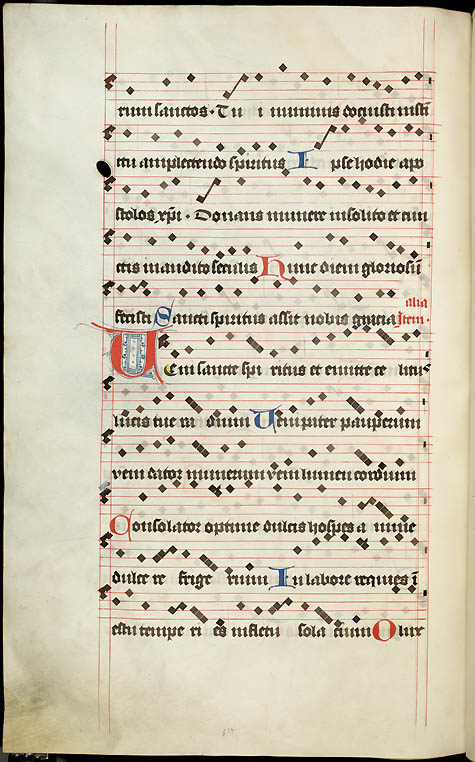 rum sanctos · Tu i minimus docuisti insti
tu amplectendo spiritus Ipse hodie apo
stolos xp̄i · Donans munere insolito et cun
ctis inaudito seculis Hunc diem gloriosū
fecisti Sancti spiritus assit nobis gracia alia
Item ·
Veni sancte spi ritus et emitte ce litus
lucis tue ra dium Veni pater pauperum
veni dator munerum veni lumen cordium
Consolator optime dulcis hospes a nime
dulce re frige rium In labore requies ī
estu tempe ri es in fletu sola cium O lux